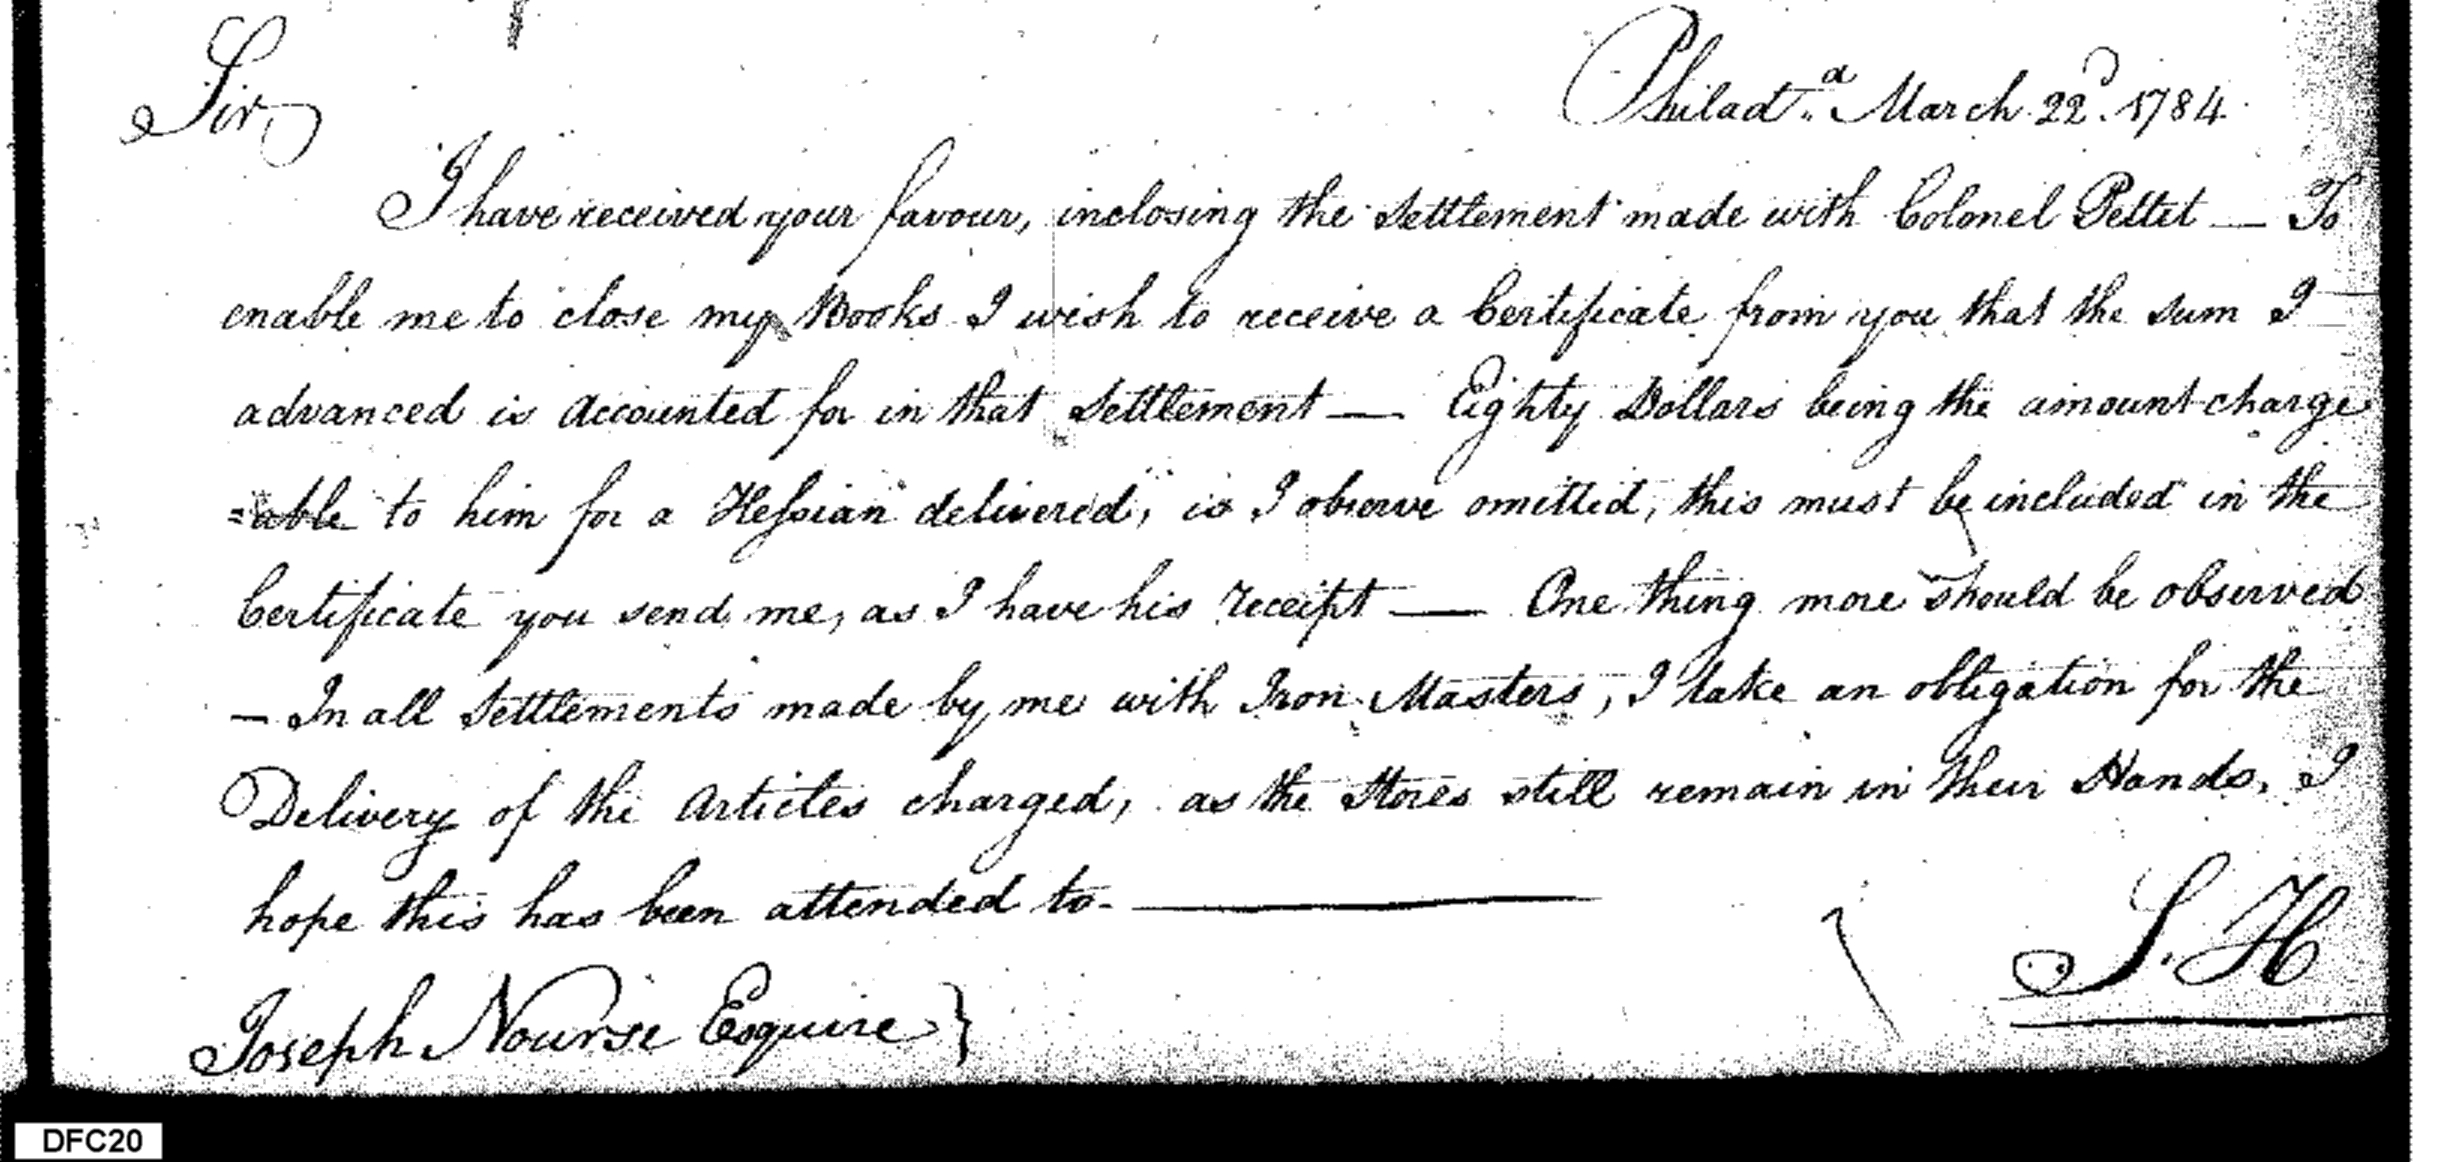 Philad.ᵃ March 22ᵈ. 1784.
Sir,
I have received your favour, inclosing the Settlement made with Colonel Pettit — To
enable me to close my Books I wish to receive a Certificate from you that the sum I
advanced is accounted for in that Settlement — Eighty Dollars being the amount charge
=able to him for a Hessian delivered, is I observe omitted, this must be included in the
Certificate you send me, as I have his receipt — One thing more should be observed
— In all Settlements made by me with Iron Masters, I take an obligation for the
Delivery of the Articles charged, as the Stores still remain in their Hands, I
hope this has been attended to. —
S. H
Joseph Nourse Esquire }
DFC20